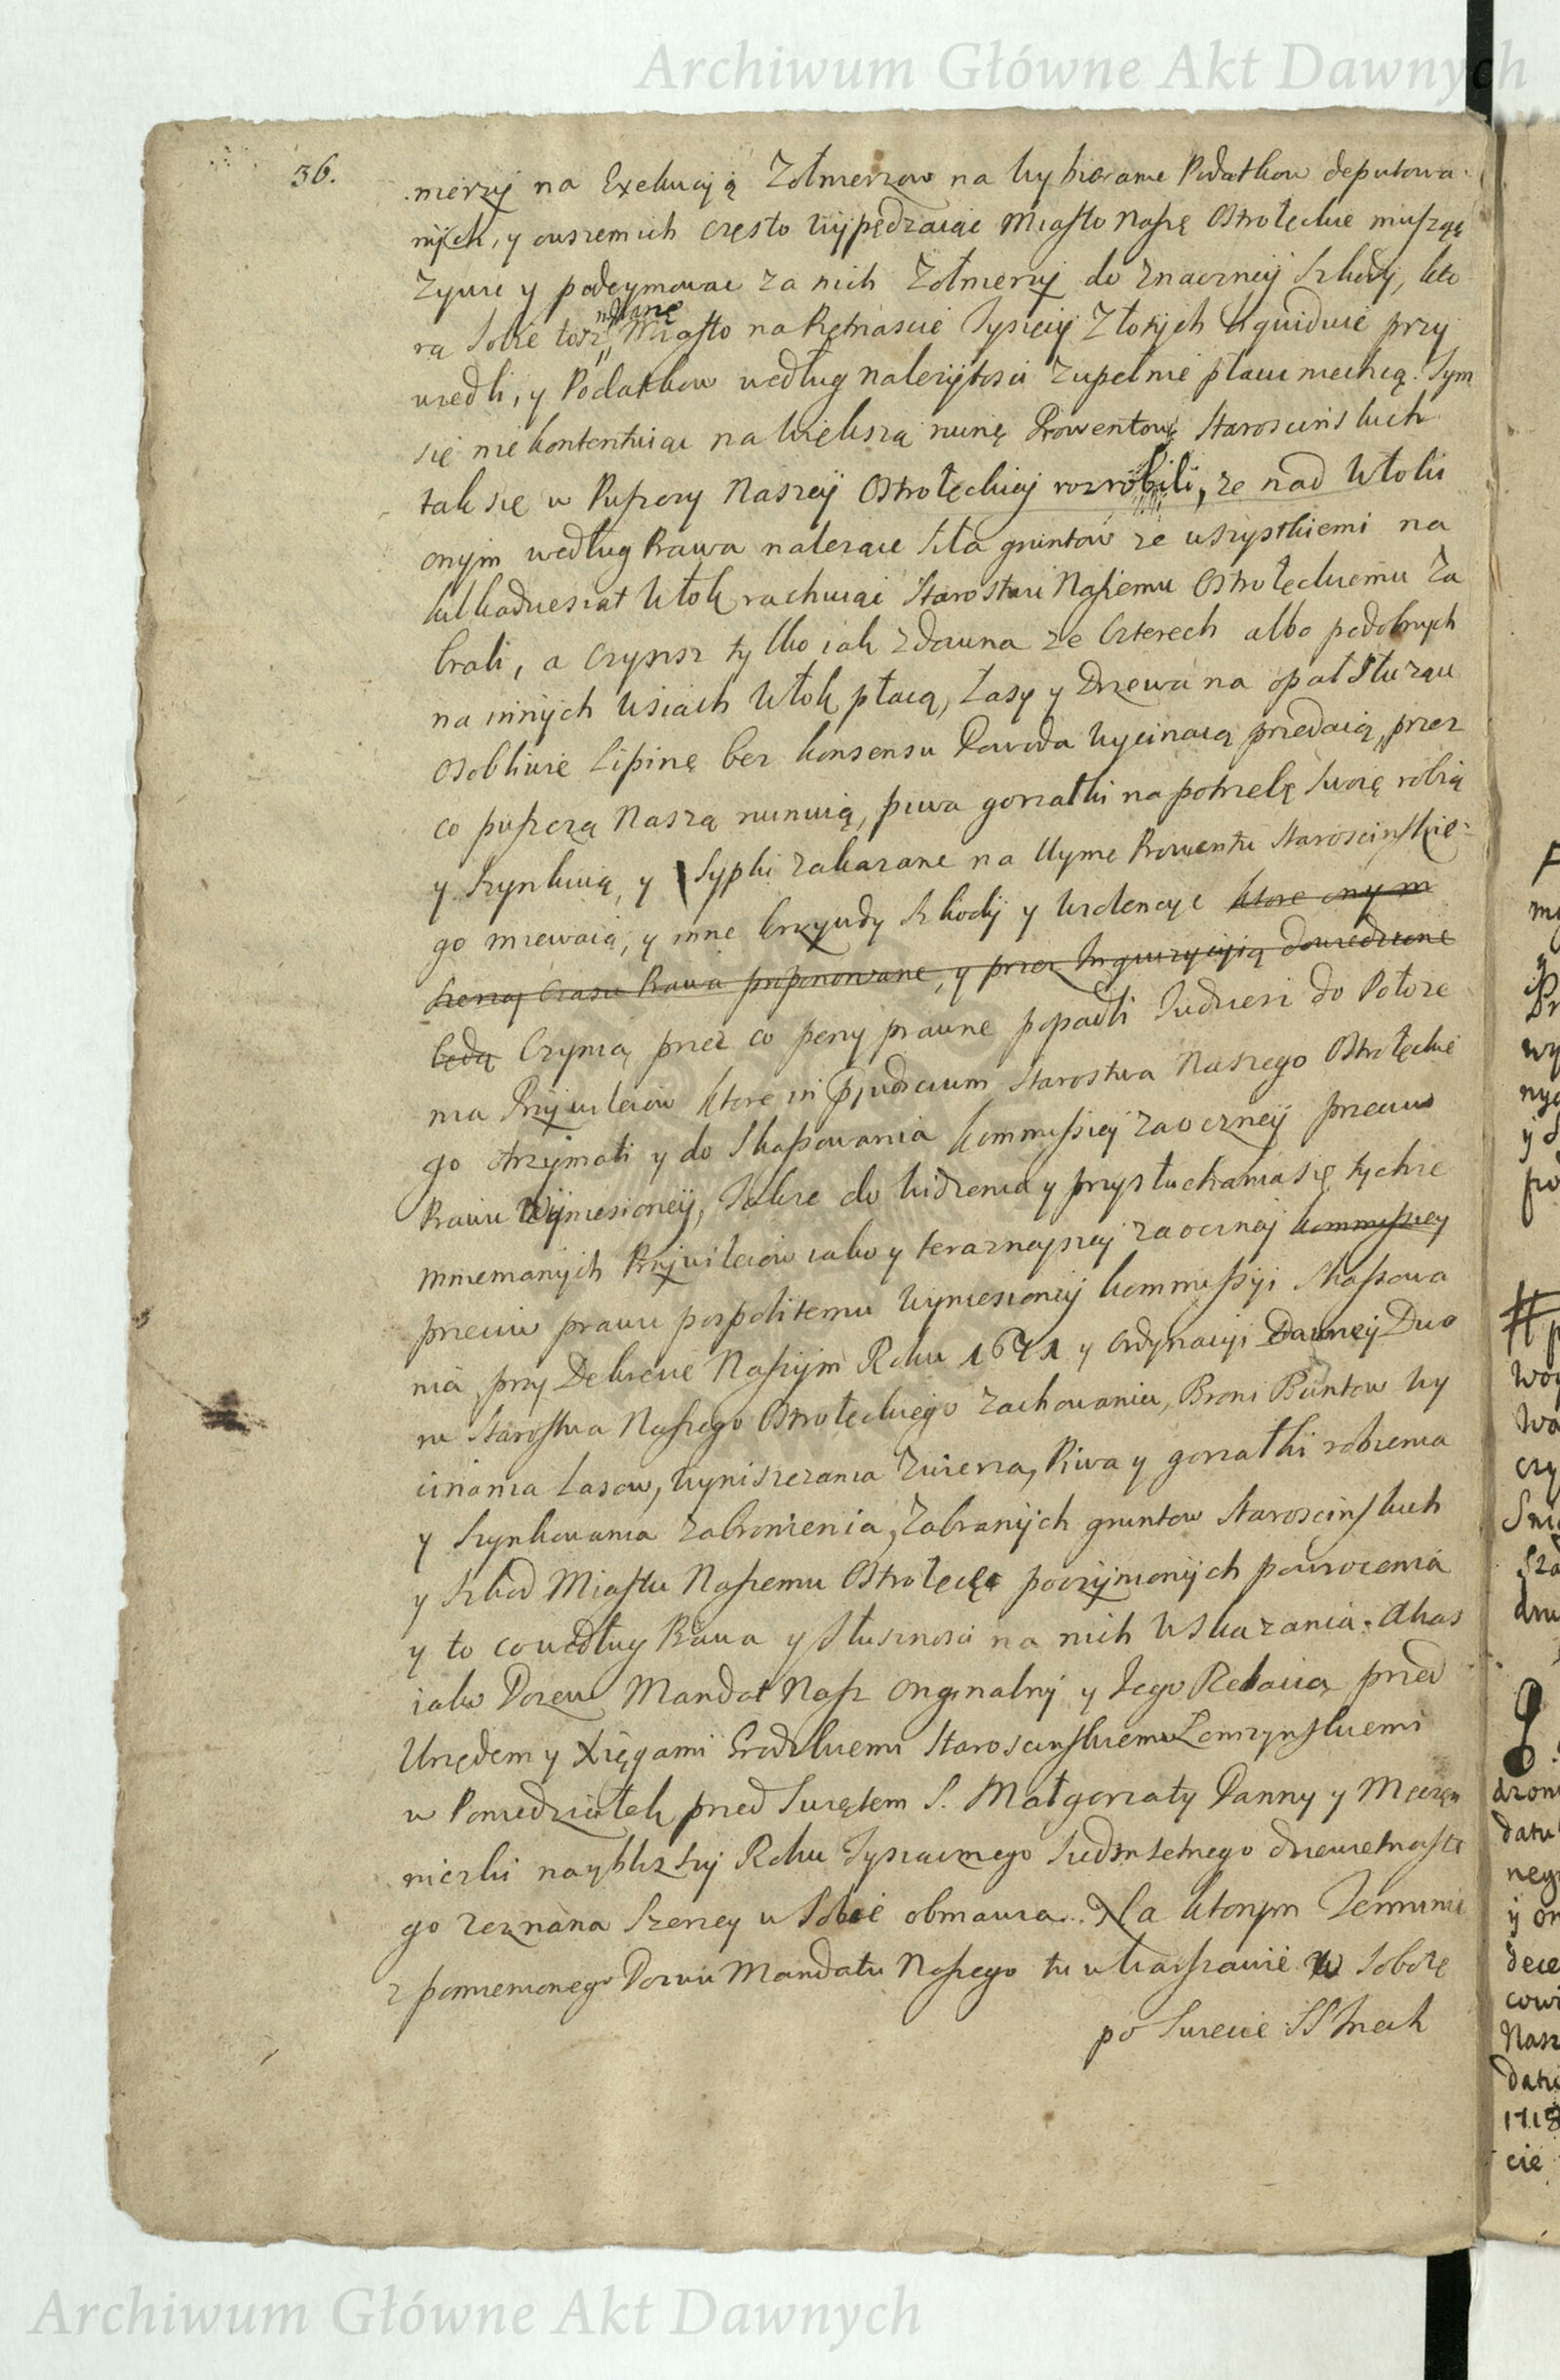 Archiwum Główne Akt Dawnych
36.
mierzÿ na Exekucyią Zołnierzow na wybieranie Podatkow deputowa-
nÿch, y owszem ich często wÿpędzaiąc Miasto Nasze Ostrołęckie muszą
Zywic y podeymowac za nich Zołnierzÿ do znaczneÿ szkody, kto
ra sobie tosz Miasto na Piętnascie Tysięcÿ Złotÿch liquiduie przy
wiedli, y Podatkow według nalezÿtosci zupełnie płacic niechcą. Tym
się nie kontentuiąc na większą ruinę Prowentow Staroscinskich
tak się w Puszczy Naszeÿ Ostrołęckieÿ rozrobili, ze nad Włoki
onÿm według Prawa nalezące siła gruntow ze wszystkiemi na
kilkadziesiat Włok rachuiąc Starostwi Naszemu Ostrołęckiemu za
brali, a czynsz tylko iak zdawna ze Czterech albo podobnych
na innÿch wsiach Włok płacą, Lasy y Drzewa na opał słuzące
osobliwie Lipinę bez konsensu Dwora wycinaią przedaią, przez
co puszczą Naszą ruinuią, piwa gorzałki na potrzebę swoię robią
y szynkuią, y Sypki zakazane na Uymę Prowentu Staroscinskie-
go miewaią, y inne krzywdy szkodÿ y wiolencye ktore onym
szerzej czasu Prawa proponowane, y przez Inquizycyią dowiedzione
będą Czynią, przez co peny prawne popadli Sudzieni do Połoze
nia Przÿwileiow ktore in Pjudicium Starostwa Naszego Ostrołęckie
go otrzÿmali y do skassowania kommissieÿ zaoczneÿ przeciwko
Prawu Wÿniesioneÿ, Takze do widzenia y przysłuchania się tychze
mniemanÿch Przÿwileiow iako y teraznieÿszeÿ zaoczneÿ kommissiey
przeciw prawu pospolitemu wyniesioneÿ kommissÿi skassowa
nia, przy Dekrecie Naszÿm Roku 1671 y Ordynacyi Dawneÿ Dwo
ru Starostwa Naszego Ostrołęckiego zachowania, Broni Buntow wy
cinania Lasow, wyniszczania zwierza, Piwa y gorzałki robienia
y szynkowania zabronienia, Zabranÿch gruntow Staroscinskich
y szkod Miastu Naszemu Ostrołęce poczÿnionÿch powrocenia
y to co według Prawa y słusznosci na nich wskazania. Akas
iako Pozew Mandat Nasz Orginalnÿ y Jego Relacia przed
Urzędem y Xięgami Grodzkiemi Staroscinskiemi Łomzynskiemi
w Poniedziałek przed Swiętem S. Małgorzaty Panny y Męczen
niczki nayblizszy Roku Tysiącznego Siedmsetnego dziewietnaste
go zeznana szerzey w sobie obmawia. Na ktorym Terminie
z pomienionego Pozwu Mandatu Naszego tu w Warszawie w Sobotę
po Swiecie SS Trzech
Archiwum Główne Akt Dawnych